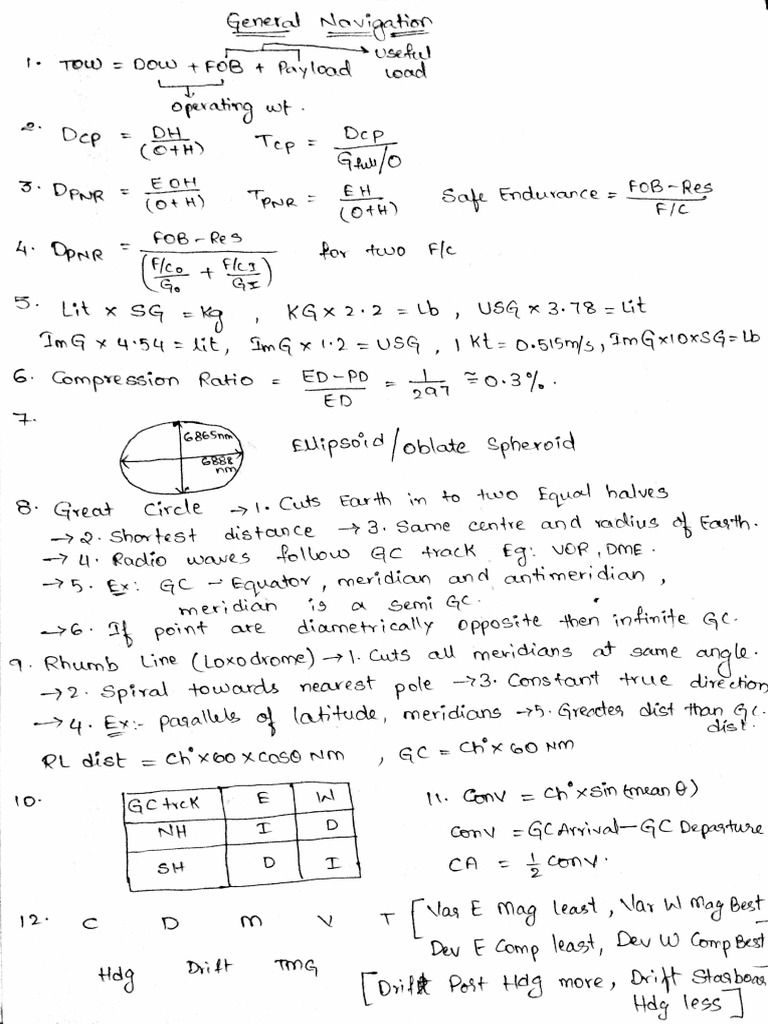 General Navigation
1. TOW = DOW + FOB + Payload → Useful load
operating wt.
2. DCP = DH/(O+H) TCP = DCP/(Gfull/O)
3. DPNR = EOH/(O+H) TPNR = EH/(O+H) Safe Endurance = FOB-Res/F/C
4. DPNR = FOB-Res/(F/Co/Go + F/CI/GI) for two F/C
5. Lit x SG = kg , KG x 2.2 = Lb , USG x 3.78 = Lit
ImG x 4.54 = lit, ImG x 1.2 = USG , 1 kt = 0.515m/s, ImGx10xSG=Lb
6. Compression Ratio = ED-PD/ED = 1/297 ≅ 0.3%.
7.
6865nm
6888 nm
Ellipsoid/oblate Spheroid
8. Great Circle → 1. Cuts Earth in to two Equal halves
→ 2. Shortest distance → 3. Same centre and radius of Earth.
→ 4. Radio waves follow GC track Eg: VOR, DME.
→ 5. Ex: GC - Equator, meridian and antimeridian,
meridian is a semi GC.
→ 6. If point are diametrically opposite then infinite GC.
9. Rhumb Line (Loxodrome) → 1. Cuts all meridians at same angle.
→ 2. Spiral towards nearest pole → 3. Constant true direction
→ 4. Ex:- parallels of latitude, meridians → 5. Greater dist than GC dist.
RL dist = Ch° x 60 x cosθ NM , GC = Ch° x 60 NM
10.
GC trck E W
NH I D
SH D I
11. Conv = Ch° x sin (mean θ)
Conv = GC Arrival - GC Departure
CA = 1/2 conv.
12. C D M V T [Var E Mag least, Var W Mag Best
Dev E Comp least, Dev W Comp Best
Hdg Drift TMG
[Drift Port Hdg more, Drift Starboar
Hdg less]